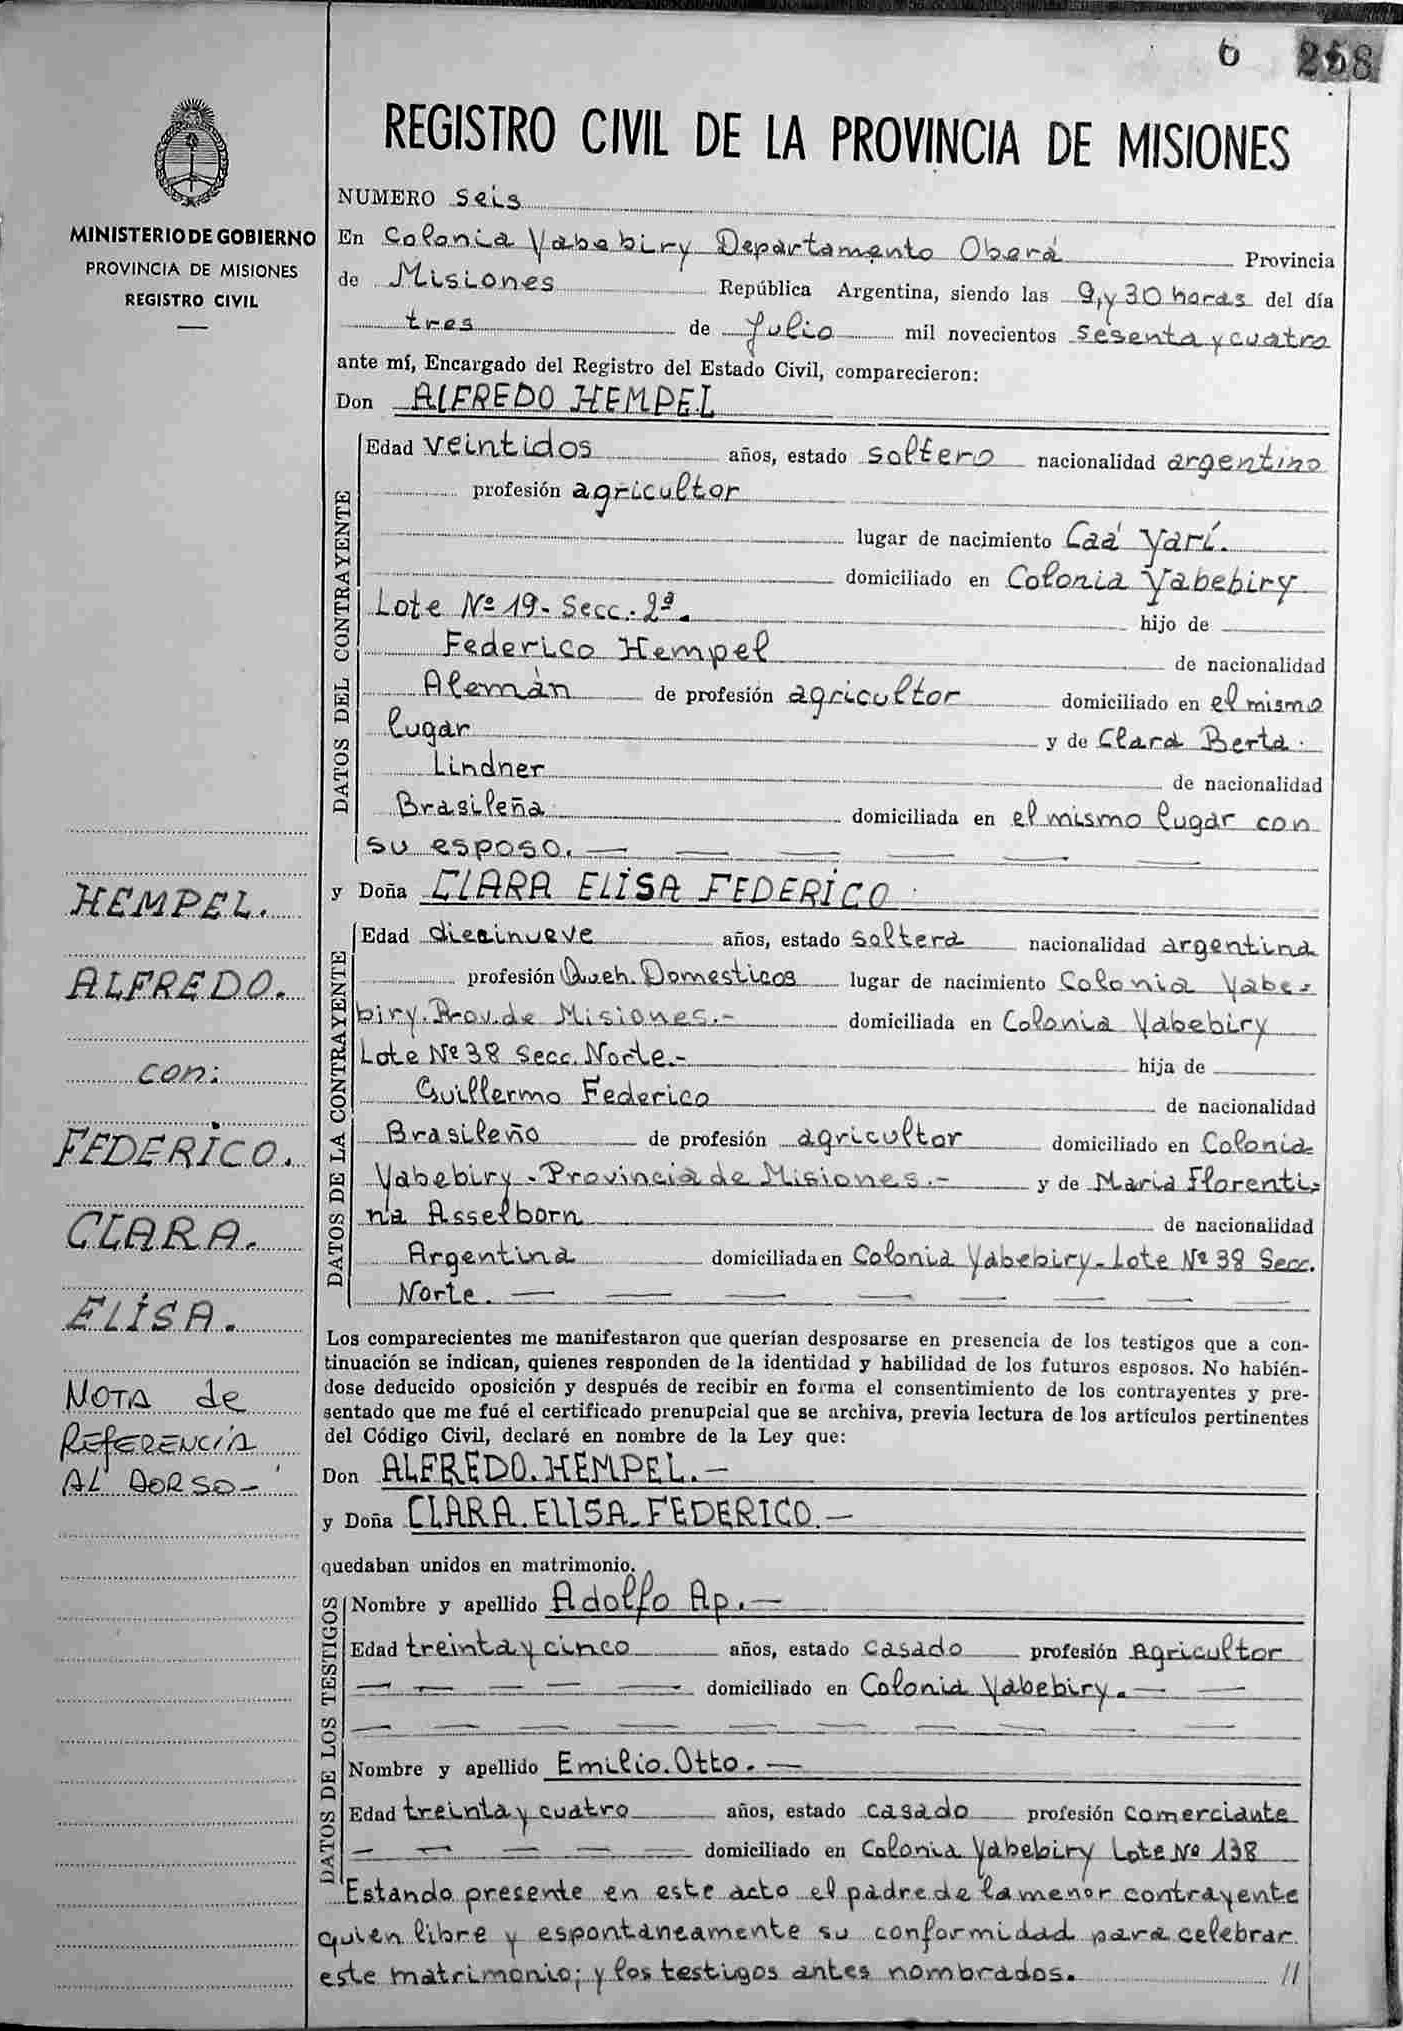 6 258
MINISTERIO DE GOBIERNO
PROVINCIA DE MISIONES
REGISTRO CIVIL
HEMPEL.
ALFREDO.
con:
FEDERICO.
CLARA.
ELISA.
NOTA de
REFERENCIA
AL DORSO-
REGISTRO CIVIL DE LA PROVINCIA DE MISIONES
NUMERO seis
En Colonia Yabebiry Departamento Oberá Provincia
de Misiones República Argentina, siendo las 9, y 30 horas del día
tres de Julio mil novecientos sesenta y cuatro
ante mí, Encargado del Registro del Estado Civil, comparecieron:
Don ALFREDO HEMPEL
DATOS DEL CONTRAYENTE
Edad veintidos años, estado soltero nacionalidad argentino
profesión agricultor
lugar de nacimiento Caá Yarí.
domiciliado en Colonia Yabebiry
Lote Nº 19- Secc. 2ª. hijo de
Federico Hempel de nacionalidad
Alemán de profesión agricultor domiciliado en el mismo
lugar y de Clara Berta
Lindner de nacionalidad
Brasileña domiciliada en el mismo lugar con
su esposo. — — — — — —
y Doña CLARA ELISA FEDERICO
DATOS DE LA CONTRAYENTE
Edad diecinueve años, estado soltera nacionalidad argentina
profesión Queh. Domesticos lugar de nacimiento Colonia Yabe-
biry. Prov. de Misiones.- domiciliada en Colonia Yabebiry
Lote Nº 38 Secc. Norte.- hija de
Guillermo Federico de nacionalidad
Brasileño de profesión agricultor domiciliado en Colonia
Yabebiry - Provincia de Misiones.- y de Maria Florenti-
na Asselborn de nacionalidad
Argentina domiciliada en Colonia Yabebiry- Lote Nº 38 Secc.
Norte. — — — — — — —
Los comparecientes me manifestaron que querían desposarse en presencia de los testigos que a con-
tinuación se indican, quienes responden de la identidad y habilidad de los futuros esposos. No habién-
dose deducido oposición y después de recibir en forma el consentimiento de los contrayentes y pre-
sentado que me fué el certificado prenupcial que se archiva, previa lectura de los artículos pertinentes
del Código Civil, declaré en nombre de la Ley que:
Don ALFREDO. HEMPEL.-
y Doña CLARA. ELISA. FEDERICO.-
quedaban unidos en matrimonio.
DATOS DE LOS TESTIGOS
Nombre y apellido Adolfo Ap.-
Edad treinta y cinco años, estado casado profesión Agricultor
— — — — — domiciliado en Colonia Yabebiry. — —
— — — — — — — — — —
Nombre y apellido Emilio. Otto. —
Edad treinta y cuatro años, estado casado profesión comerciante
— — — — — domiciliado en Colonia Yabebiry Lote Nº 138
Estando presente en este acto el padre de la menor contrayente
quien libre y espontaneamente su conformidad para celebrar
este matrimonio; y los testigos antes nombrados. //